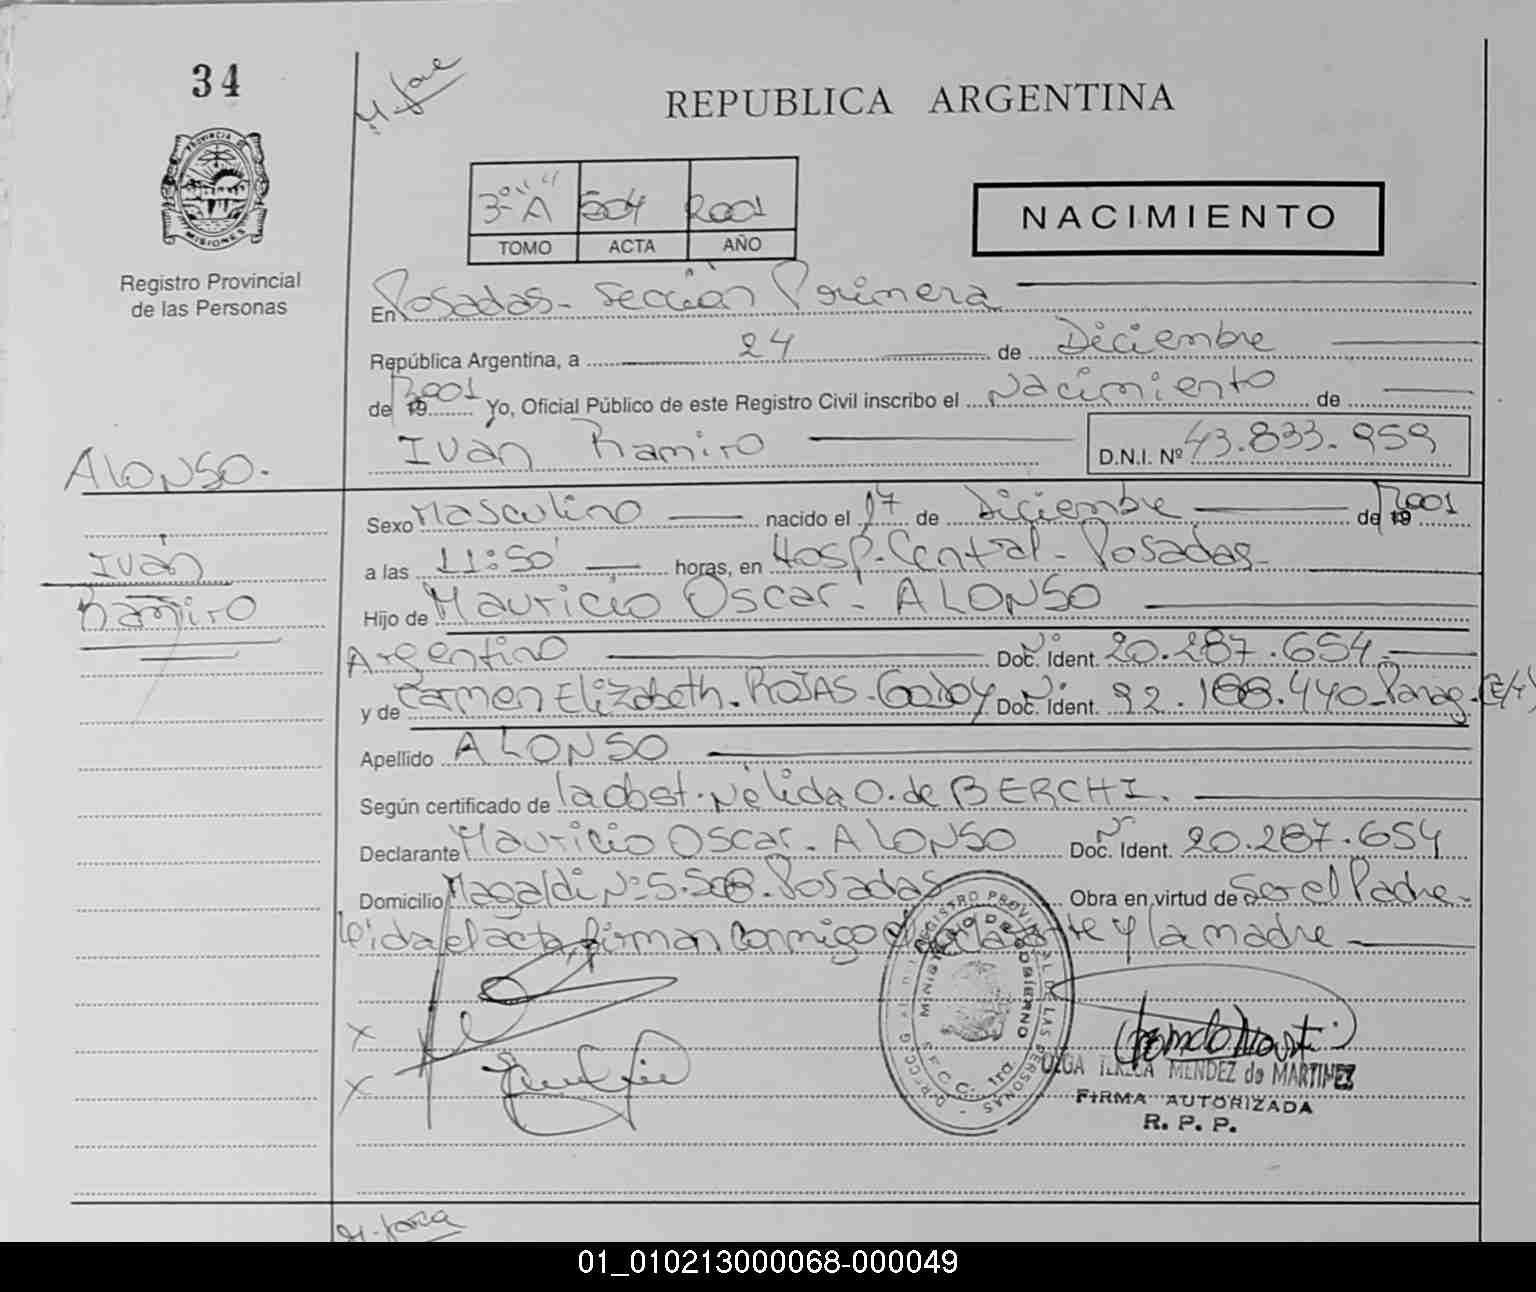 34
REPUBLICA ARGENTINA
PROVINCIA DE
MISIONES
Registro Provincial
de las Personas
3º "A" 504 2001
TOMO ACTA AÑO
NACIMIENTO
En Posadas - Sección Primera
República Argentina, a 24 de Diciembre
de 19 2001 Yo, Oficial Público de este Registro Civil inscribo el Nacimiento de
Ivan Ramiro D.N.I. Nº 43.833.959
ALONSO.
Iván
Ramiro
Sexo Masculino nacido el 17 de Diciembre de 19 2001
a las 11:50' horas, en Hosp. Central - Posadas -
Hijo de Mauricio Oscar - ALONSO
Argentino Doc. Ident. Nº 20.287.654
y de Carmen Elizabeth - ROJAS - Godoy Doc. Ident. Nº 92.188.440 - Parag. (E/T)
Apellido ALONSO
Según certificado de la obst. Nélida O. de BERCHI.
Declarante Mauricio Oscar - ALONSO Doc. Ident. Nº 20.287.654
Domicilio Magaldi Nº 5.508 - Posadas Obra en virtud de Ser el Padre -
leida el acta, firman conmigo el declarante y la madre
REGISTRO PROVINCIAL DE LAS PERSONAS
MINISTERIO DE GOBIERNO
SECC. 1ra
OLGA TERESA MENDEZ de MARTINEZ
FIRMA AUTORIZADA
R. P. P.
01_010213000068-000049